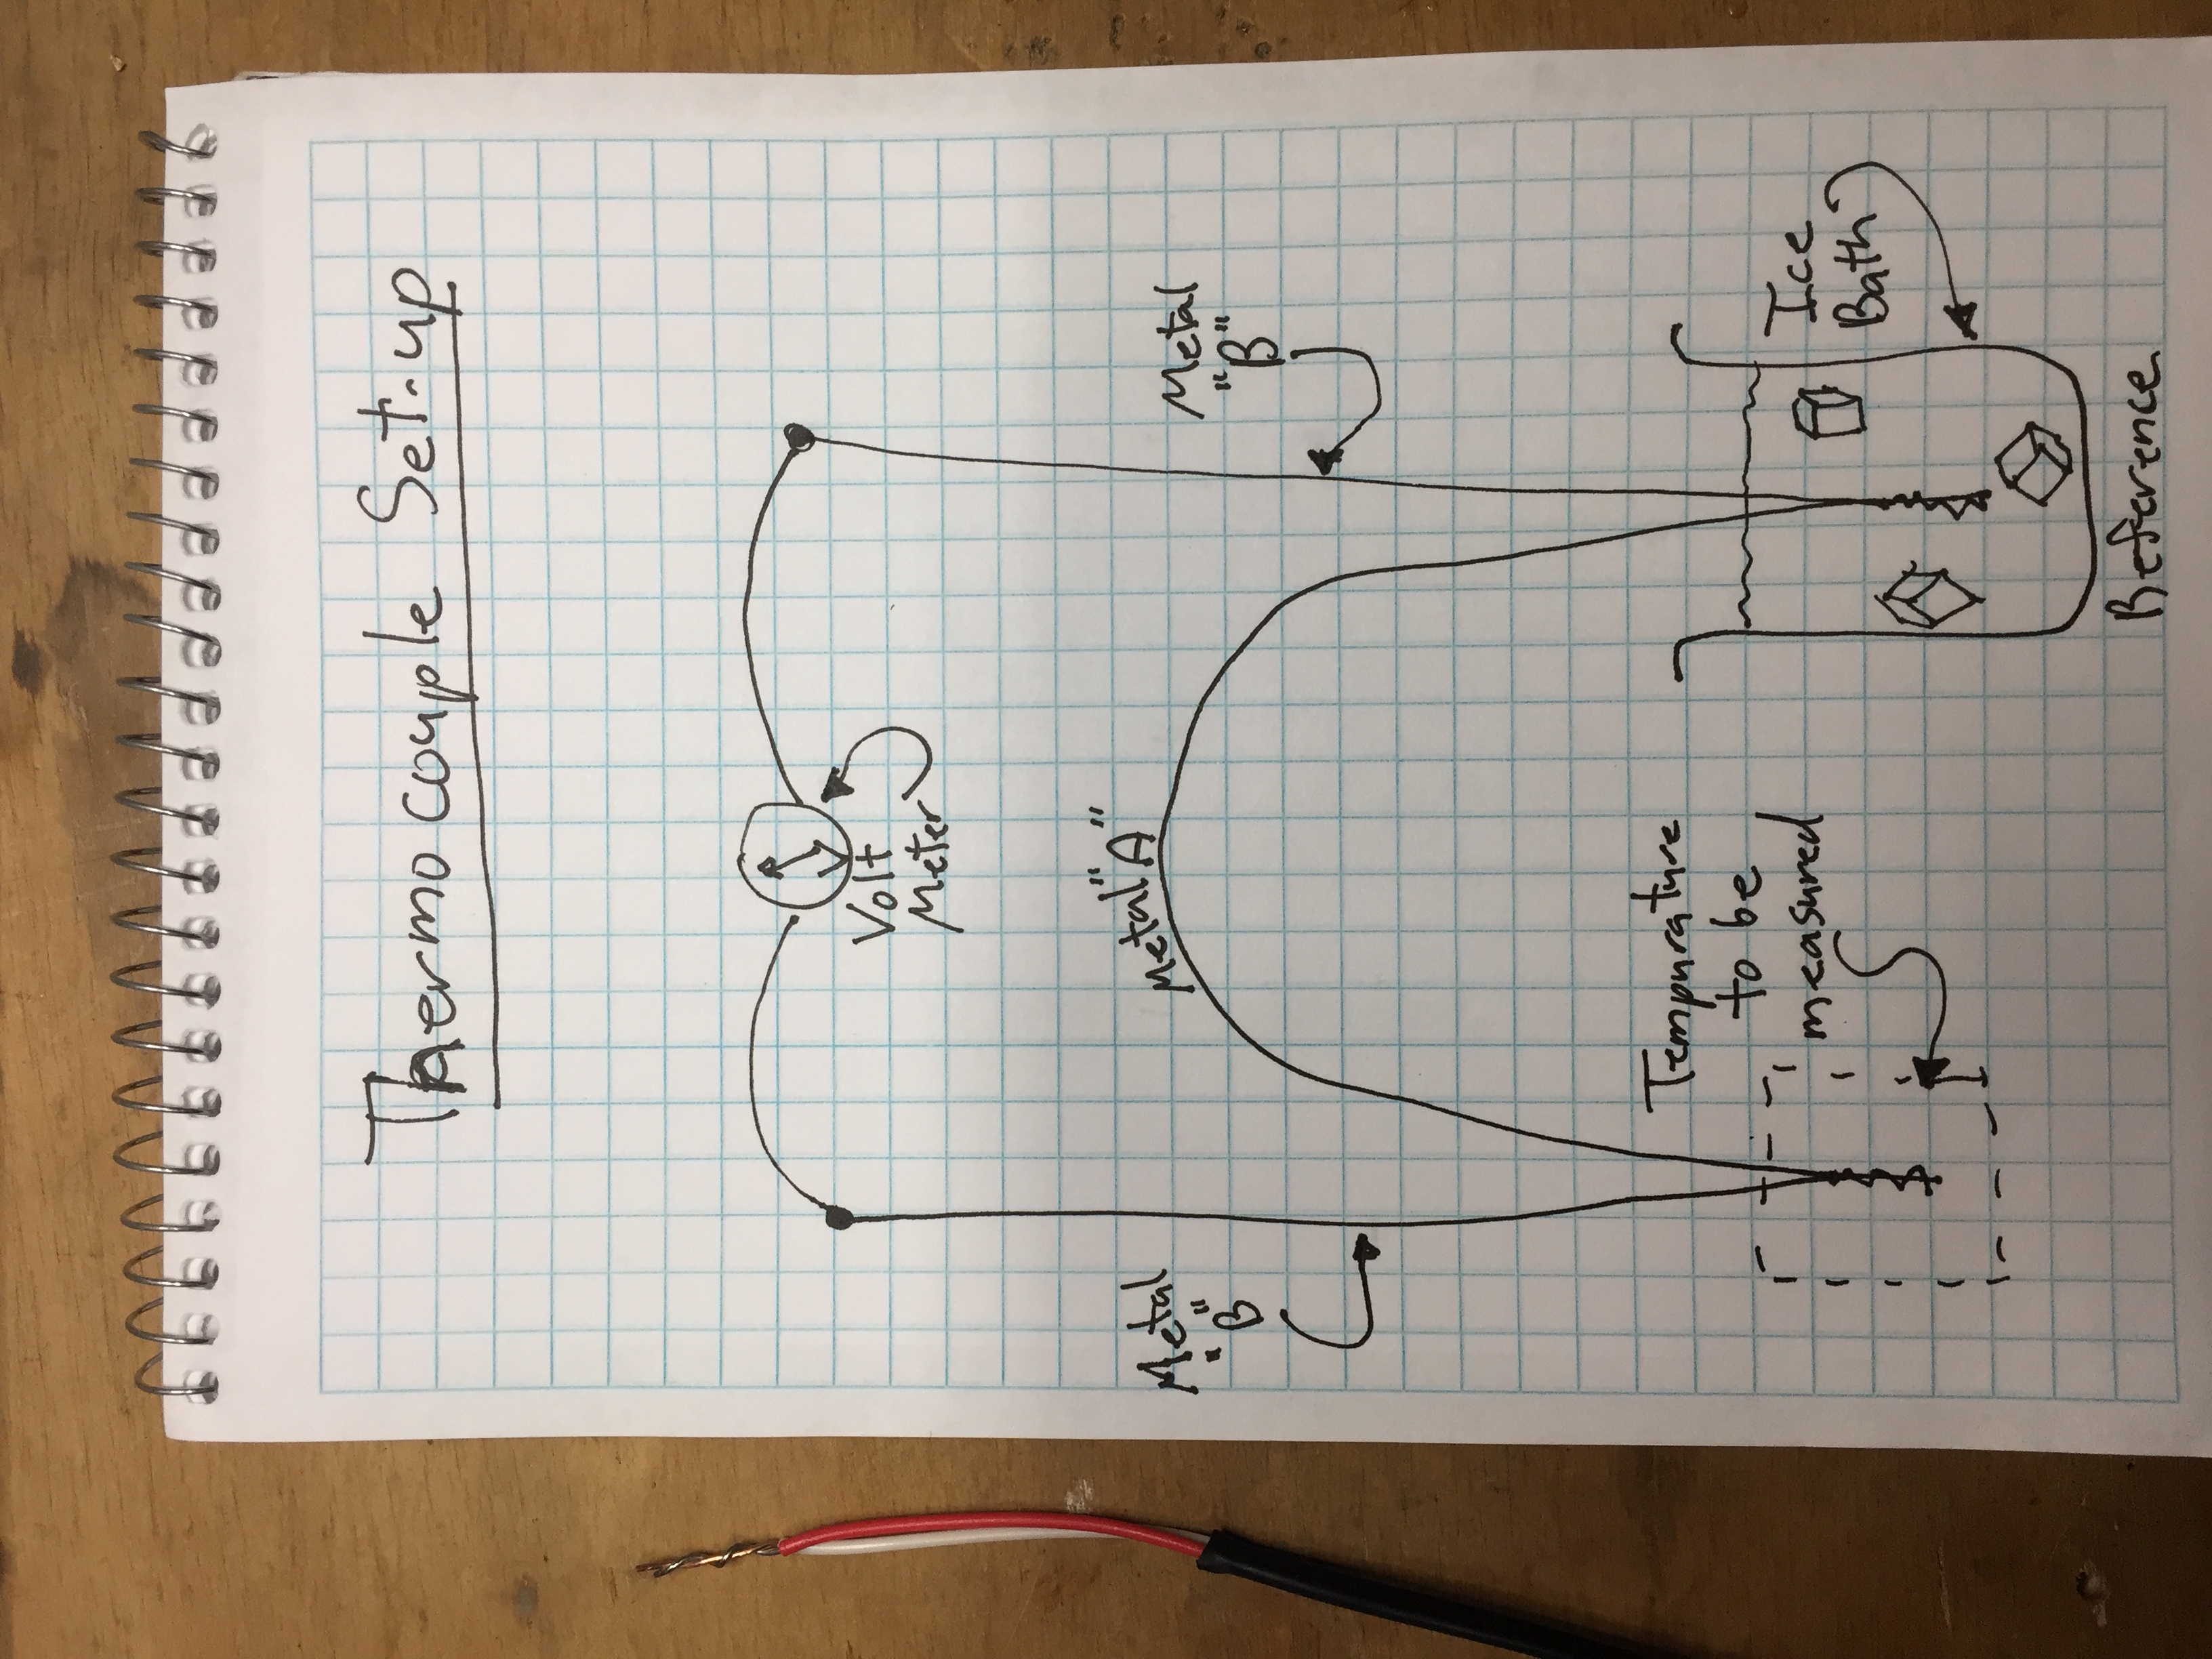 Thermocouple Set-up
Volt
Meter
Metal "A"
Metal
"B"
Metal
"B"
Tempurature
to be
measured
Ice
Bath
Reference